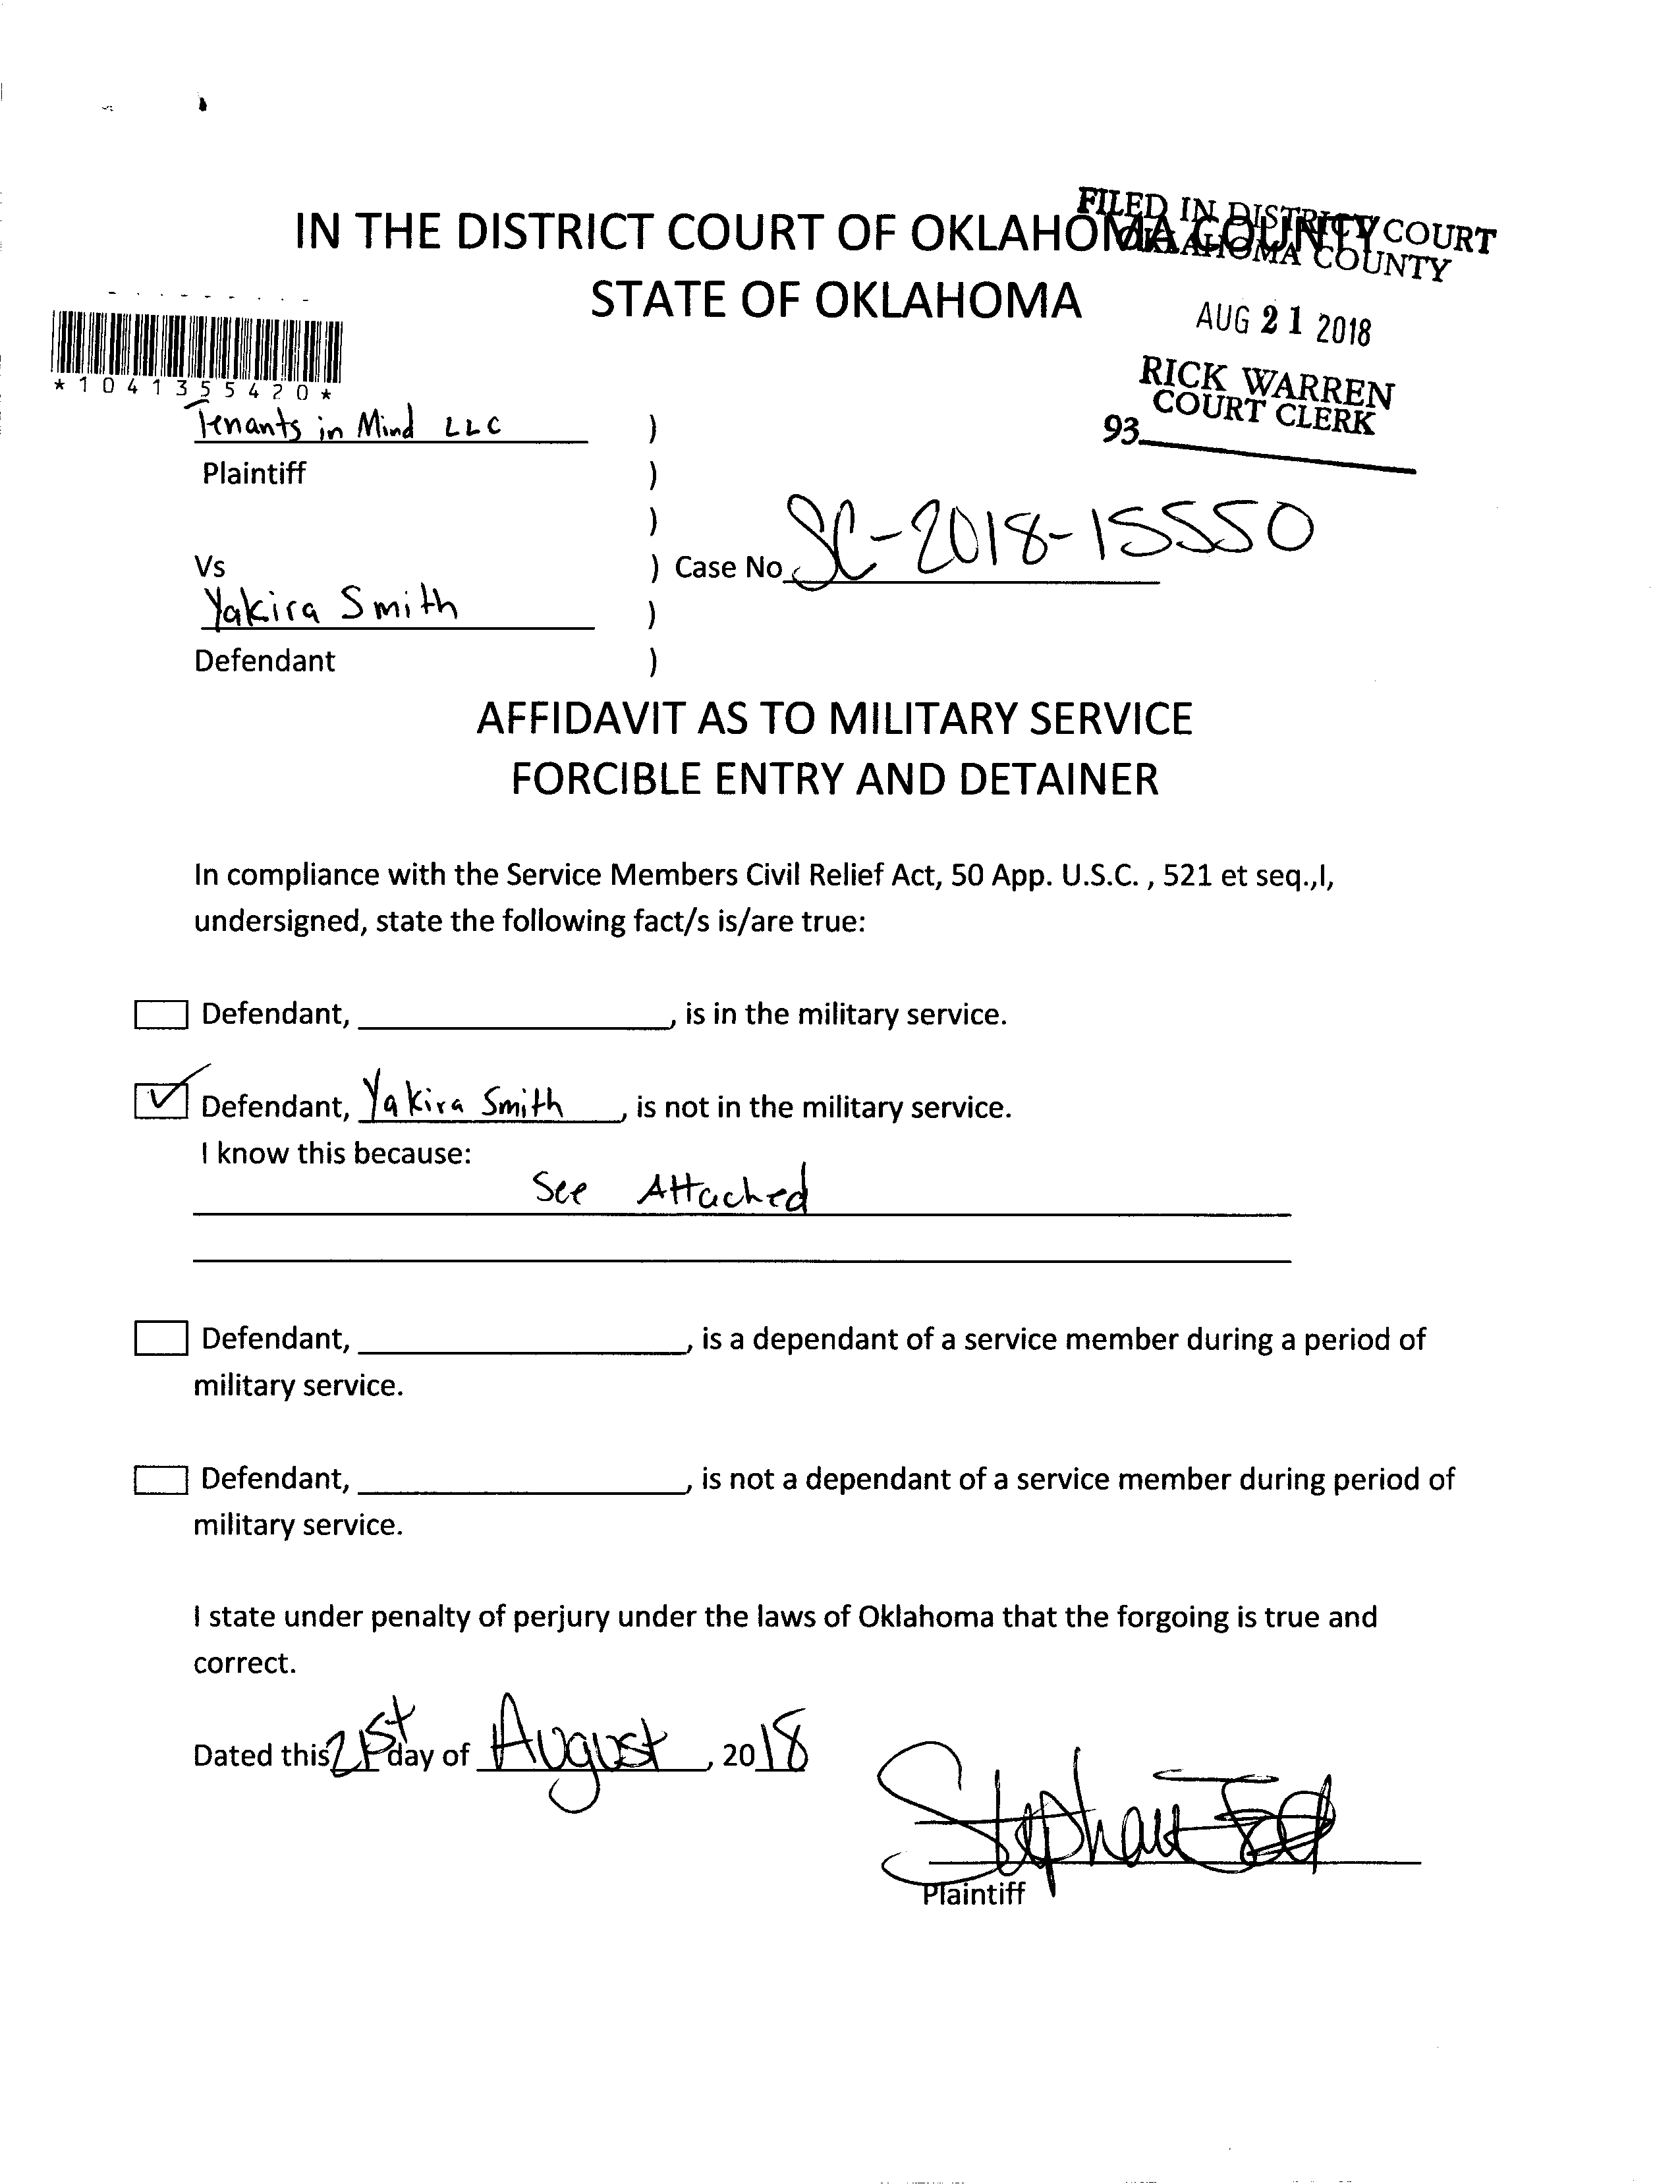 FILED IN DISTRICT COURT
OKLAHOMA COUNTY
IN THE DISTRICT COURT OF OKLAHOMA COUNTY
STATE OF OKLAHOMA
AUG 21 2018
RICK WARREN
COURT CLERK
93
*1041355420*
Tenants in Mind LLC )
Plaintiff )
)
Vs ) Case No SC-2018-15550
Yakira Smith )
Defendant )
AFFIDAVIT AS TO MILITARY SERVICE
FORCIBLE ENTRY AND DETAINER
In compliance with the Service Members Civil Relief Act, 50 App. U.S.C. , 521 et seq.,I,
undersigned, state the following fact/s is/are true:
Defendant, , is in the military service.
Defendant, Yakira Smith , is not in the military service.
I know this because:
See Attached
Defendant, , is a dependant of a service member during a period of
military service.
Defendant, , is not a dependant of a service member during period of
military service.
I state under penalty of perjury under the laws of Oklahoma that the forgoing is true and
correct.
Dated this 21st day of August , 2018
Plaintiff